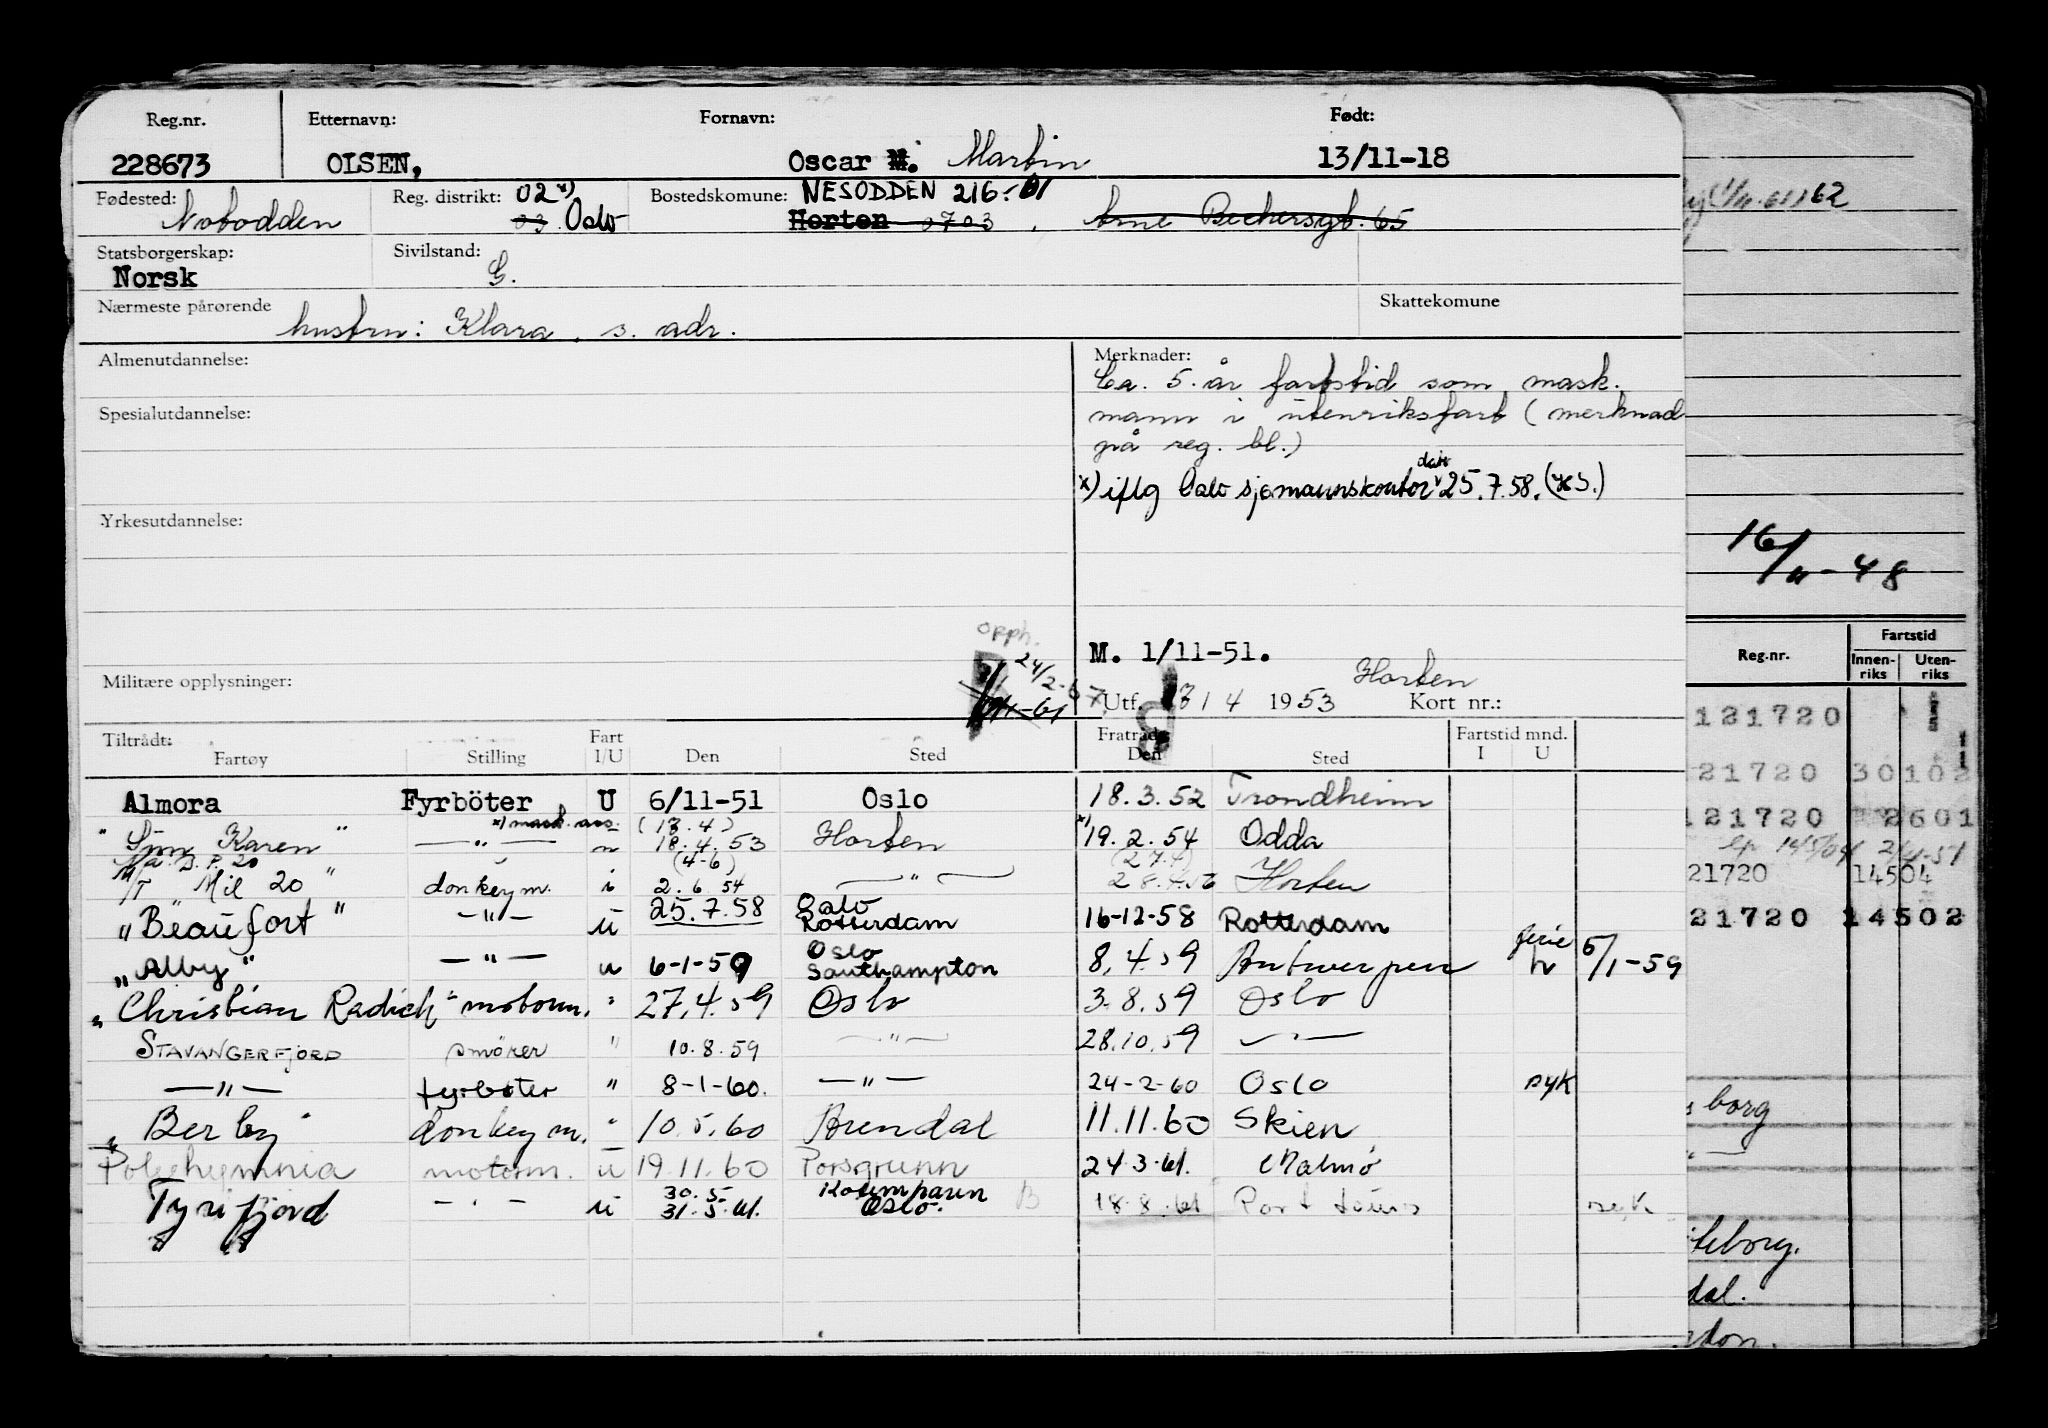 Reg.nr. Etternavn: Fornavn: Født:
228673 OLSEN, Oscar M. Martin 13/11-18
Fødested: Notodden Reg. distrikt: 02 x) 03 Oslo Bostedskomune: NESODDEN 216-01
Horten 0703 Arne Bechersgt. 65
Statsborgerskap: Norsk Sivilstand: G.
Nærmeste pårørende hustru: Klara, s. adr. Skattekomune
Almenutdannelse: Merknader:
Ca. 5 år fartstid som mask.
mann i utenriksfart (merknad
på reg. bl.)
Spesialutdannelse:
x) iflg Oslo sjømannskontor dat 25.7.58.
Yrkesutdannelse:
opph.
24/2-67
M. 1/11-51.
Militære opplysninger: Horten
Utf. 1953 Kort nr.:
Tiltrådt: Fart Fratrådt: Fartstid mnd.
Fartøy Stilling I/U Den Sted Den Sted I U
Almora Fyrböter U 6/11-51 Oslo 18.3.52 Trondheim
x) mask. ass. (17.4)
"Synn Karen" — " — " 18.4.53 Horten x) 19.2.54 Odda
(4-6) (27.4)
M/T "Mil 20" donkeym. i 2.6.54 — " — 28.4.56 Horten
"Beaufort" — " — u 25.7.58 Oslo Rotterdam 16-12-58 Rotterdam
"Alby" — " — u 6-1-59 Oslo Southampton 8.4.59 Antwerpen ferie 5/1-59
"Christian Radich" motorm. " 27.4.59 Oslo 3.8.59 Oslo
STAVANGERFJORD smører " 10.8.59 — " — 28.10.59 — " —
— " — fyrbøter " 8-1-60. — " — 24-2-60 Oslo syk
"Berby" donkeym. " 10.5.60 Arendal 11.11.60 Skien
Polyhymnia motorm. u 19.11.60 Porsgrunn 24.3.61. Malmø
Tyrifjord — " — u 30.5. 31.5.61. Oslo. 18.8.61 Port syk
62
16/11-48
Reg.nr. Fartstid
Innen-riks Uten-riks
121720
21720 30102
121720 2601
21720 14504
21720 14502
borg
teborg.
dal.